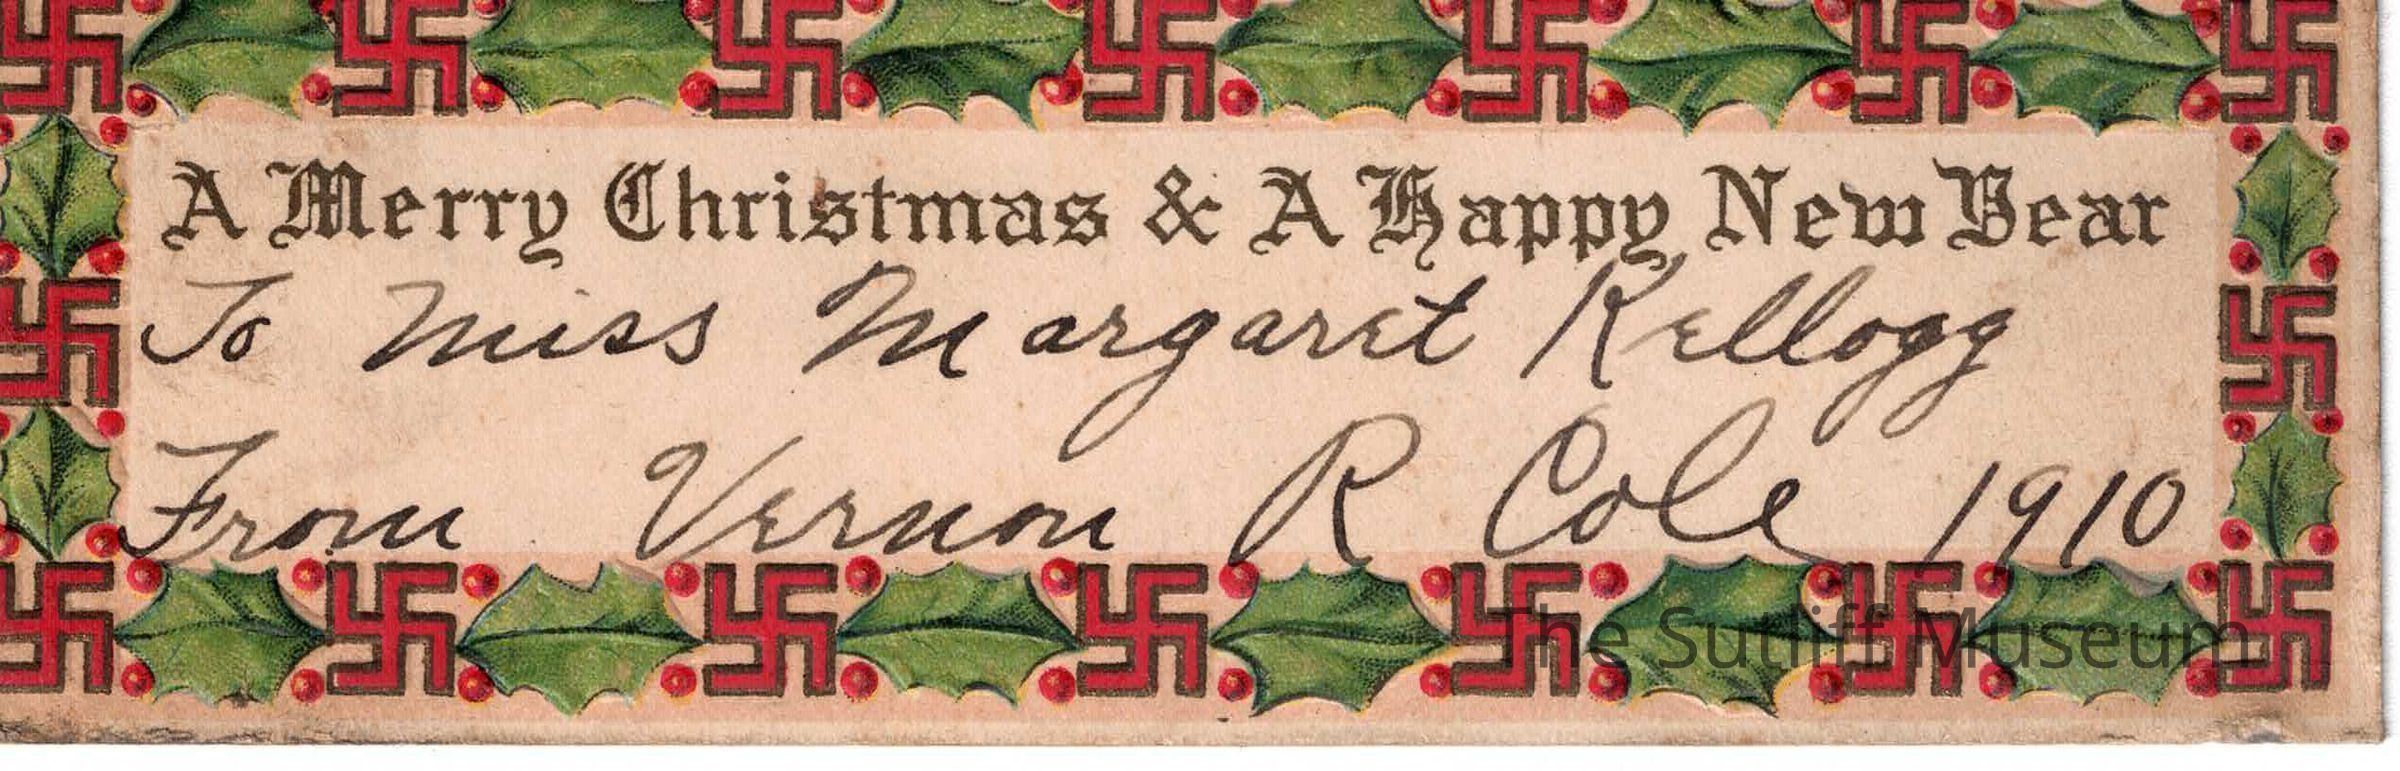 A Merry Christmas & A Happy New Year
To Miss Margaret Kellogg
From Vernon R Cole 1910
The Sutliff Museum